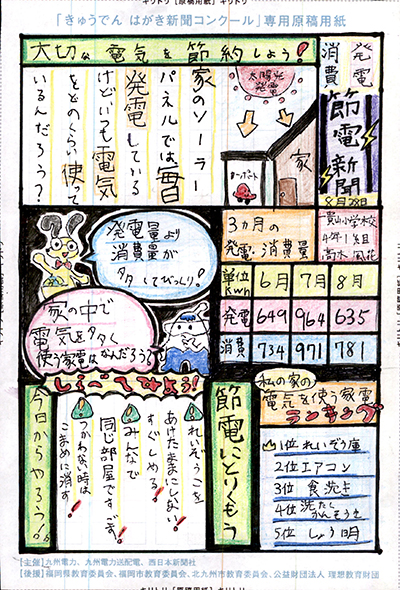 キリトリ【原稿用紙】キリトリ
「きゅうでん はがき新聞コンクール」専用原稿用紙
大切な電気を節約しよう!
発電
消費
節電新聞
8月28日
貫小学校
4年1組
高木 風花
太陽光
発電
家
カーポート
家のソーラー
パネルでは毎日
発電している
けどいつも電気
をどのくらい使って
いるんだろう?
発電量より
消費量が
多くてびっくり!
家の中で
電気を多く
使う家電はなんだろう?
3カ月の
発電・消費量
単位kwh 6月 7月 8月
発電 649 964 635
消費 734 971 781
私の家の
電気を使う家電
ランキング
1位 れいぞう庫
2位 エアコン
3位 食洗き
4位 洗たくかんそうき
5位 しょう明
節電にとりくもう
しらべてみよう!
れいぞうこを
あけたままにしない
すぐしめる!
みんなで
同じ部屋ですごす!
つかわない時は
こまめに消す!
今日からやろう!!
【主催】九州電力、九州電力送配電、西日本新聞社
【後援】福岡県教育委員会、福岡市教育委員会、北九州市教育委員会、公益財団法人 理想教育財団
キリトリ【原稿用紙】キリトリ